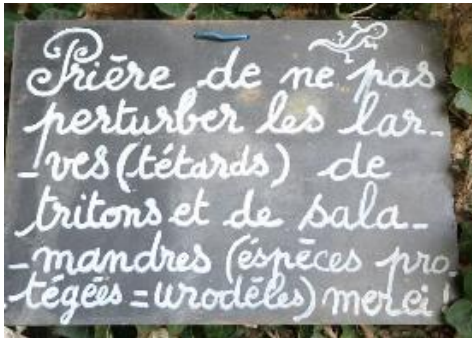 Prière de ne pas
perturber les lar-
-ves (tétards) de
tritons et de sala-
-mandres (éspèces pro-
tégées = urodèles) merci !